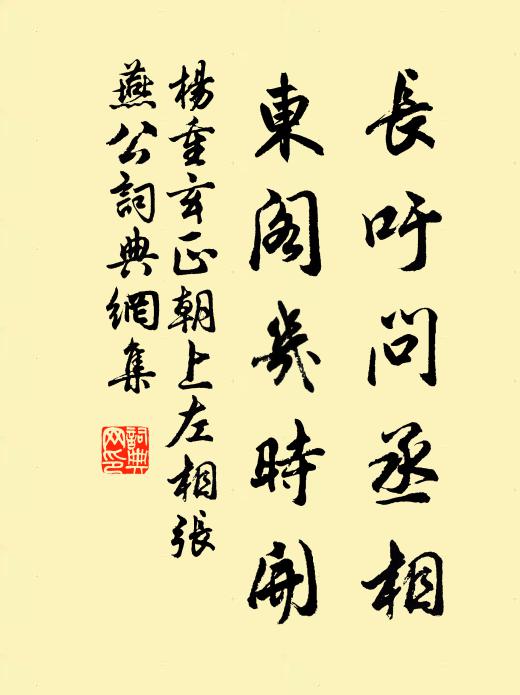 長吁問丞相
東閣幾時開
楊重玄正朝上左相張
燕公詞典網集
詞典网印